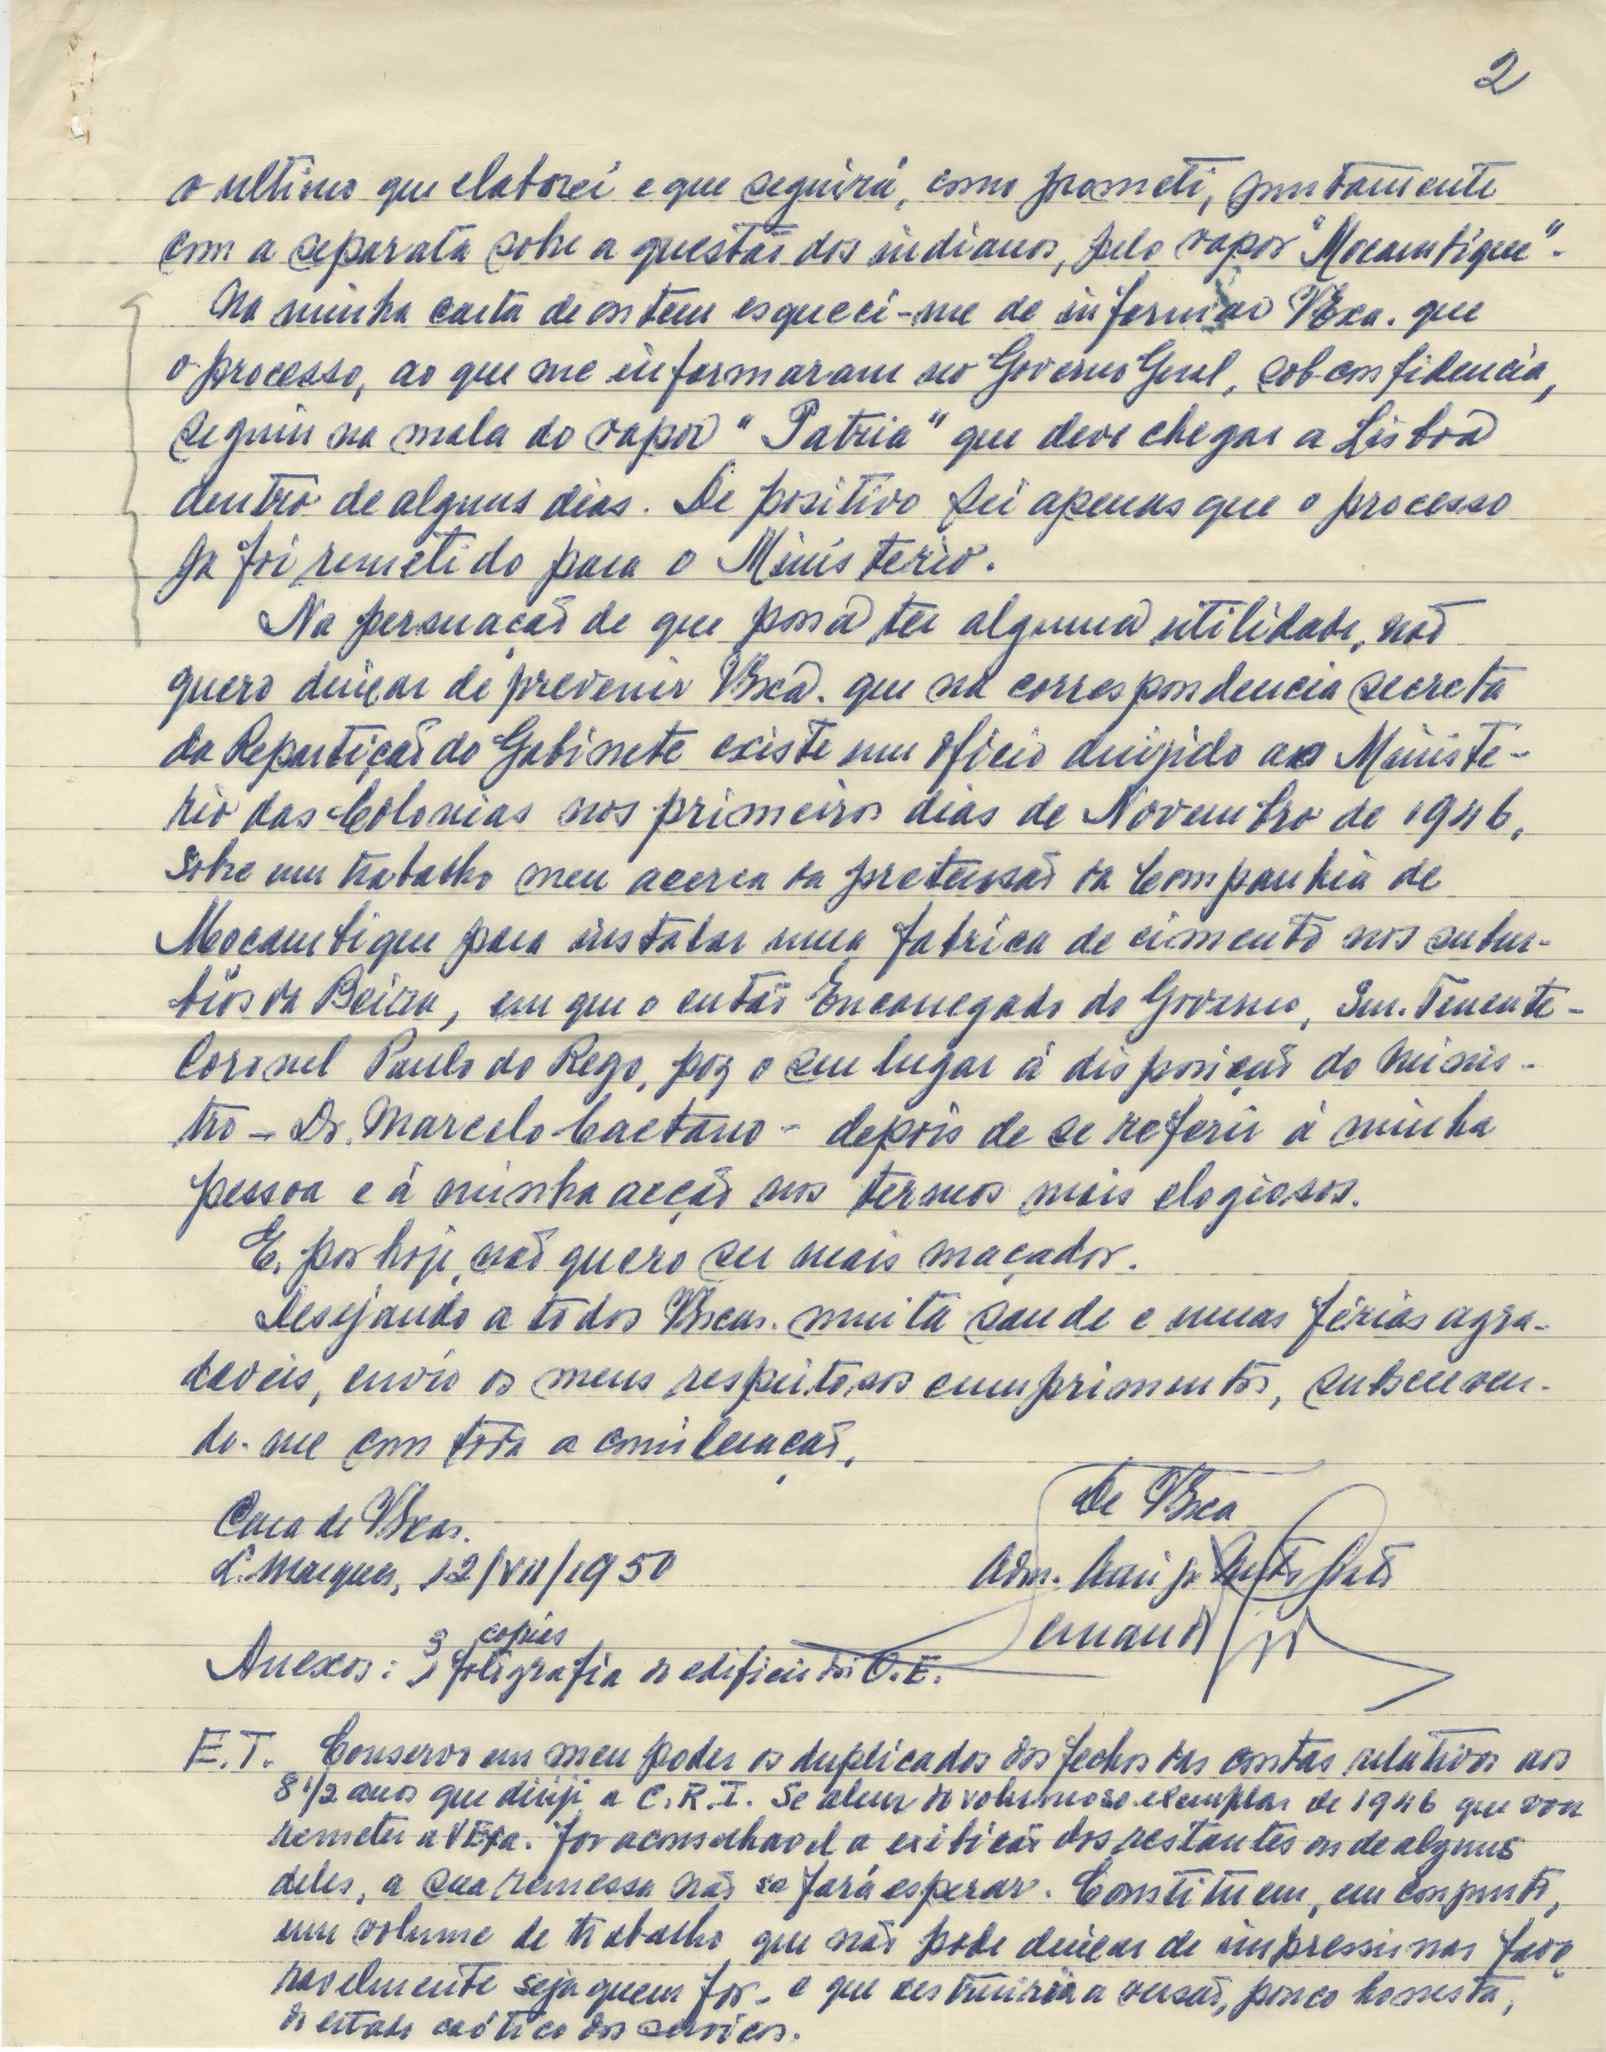 2
o ultimo que elaborei e que seguirá, como prometi, juntamente
com a separata sobre a questão dos indianos, pelo vapor "Mocambique".
Na minha carta de ontem esqueci-me de informar VExa. que
o processo, ao que me informaram no Governo Geral, sob confidencia,
seguiu na mala do vapor "Patria" que deve chegar a Lisboa
dentro de alguns dias. De positivo sei apenas que o processo
ja foi remetido para o Ministerio.
Na persuação de que possa ter alguma utilidade, não
quero deixar de prevenir VExa. que na correspondencia secreta
da Repartição do Gabinete existe um oficio dirigido ao Ministe-
rio das Colonias nos primeiros dias de Novembro de 1946,
sobre um trabalho meu acerca da pretensão da Companhia de
Mocambique para instalar uma fabrica de cimento nos subur-
bios da Beira, em que o então Encarregado do Governo, Snr. Tenente-
Coronel Paulo do Rego, poz o seu lugar á disposição do Minis-
tro - Dr. Marcelo Caetano - depois de se referir á minha
pessoa e á minha acção nos termos mais elogiosos.
E, por hoje, não quero ser mais maçador.
Desejando a todos VExas. muita saude e umas férias agra-
daveis, envio os meus respeitosos cumprimentos, subscreven-
do-me com toda a consideração,
De VExa
Casa de VExas.
L. Marques, 12/VII/1950
Adm. Amigo Muito Grato
copias
Anexos: 3 fotografia do edificio dos O.E.
E.T. Conservo em meu poder os duplicados dos fechos das contas relativos aos
8 1/2 anos que dirigi a C.R.I. Se alem do volumoso exemplar de 1946 que vou
remeter a VExa. for aconselhavel a exibição dos restantes ou de alguns
deles, a sua remessa não se fará esperar. Constituem, em conjunto,
um volume de trabalho que não pode deixar de impressionar favo-
ravelmente seja quem for - e que destruiria a versão, pouco honesta,
do estado caótico dos serviços.